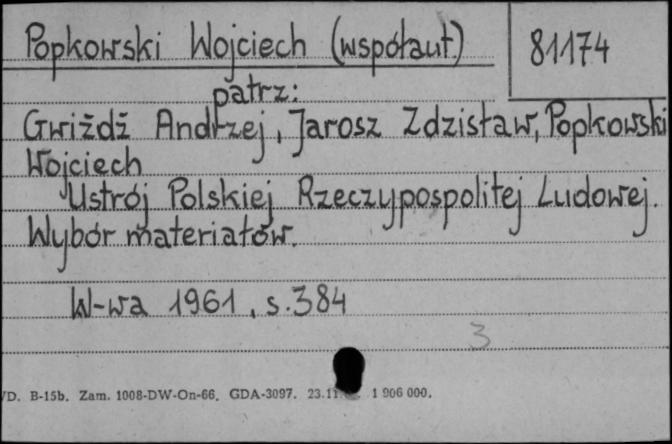 Popkowski Wojciech (współaut) 81174
patrz:
Gwiżdż Andrzej, Jarosz Zdzisław, Popkowski
Wojciech
Ustrój Polskiej Rzeczypospolitej Ludowej.
Wybór materiałów.
W-wa 1961, s. 384
3
D. B-15b. Zam. 1008-DW-On-66. GDA-3097. 23.11 1 906 000.